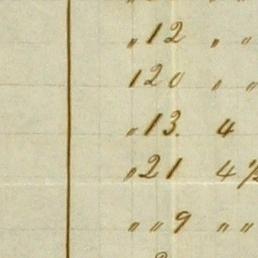 " 12 " "
120 " "
" 13. 4
" 21 4 1/2
" " 9 " "